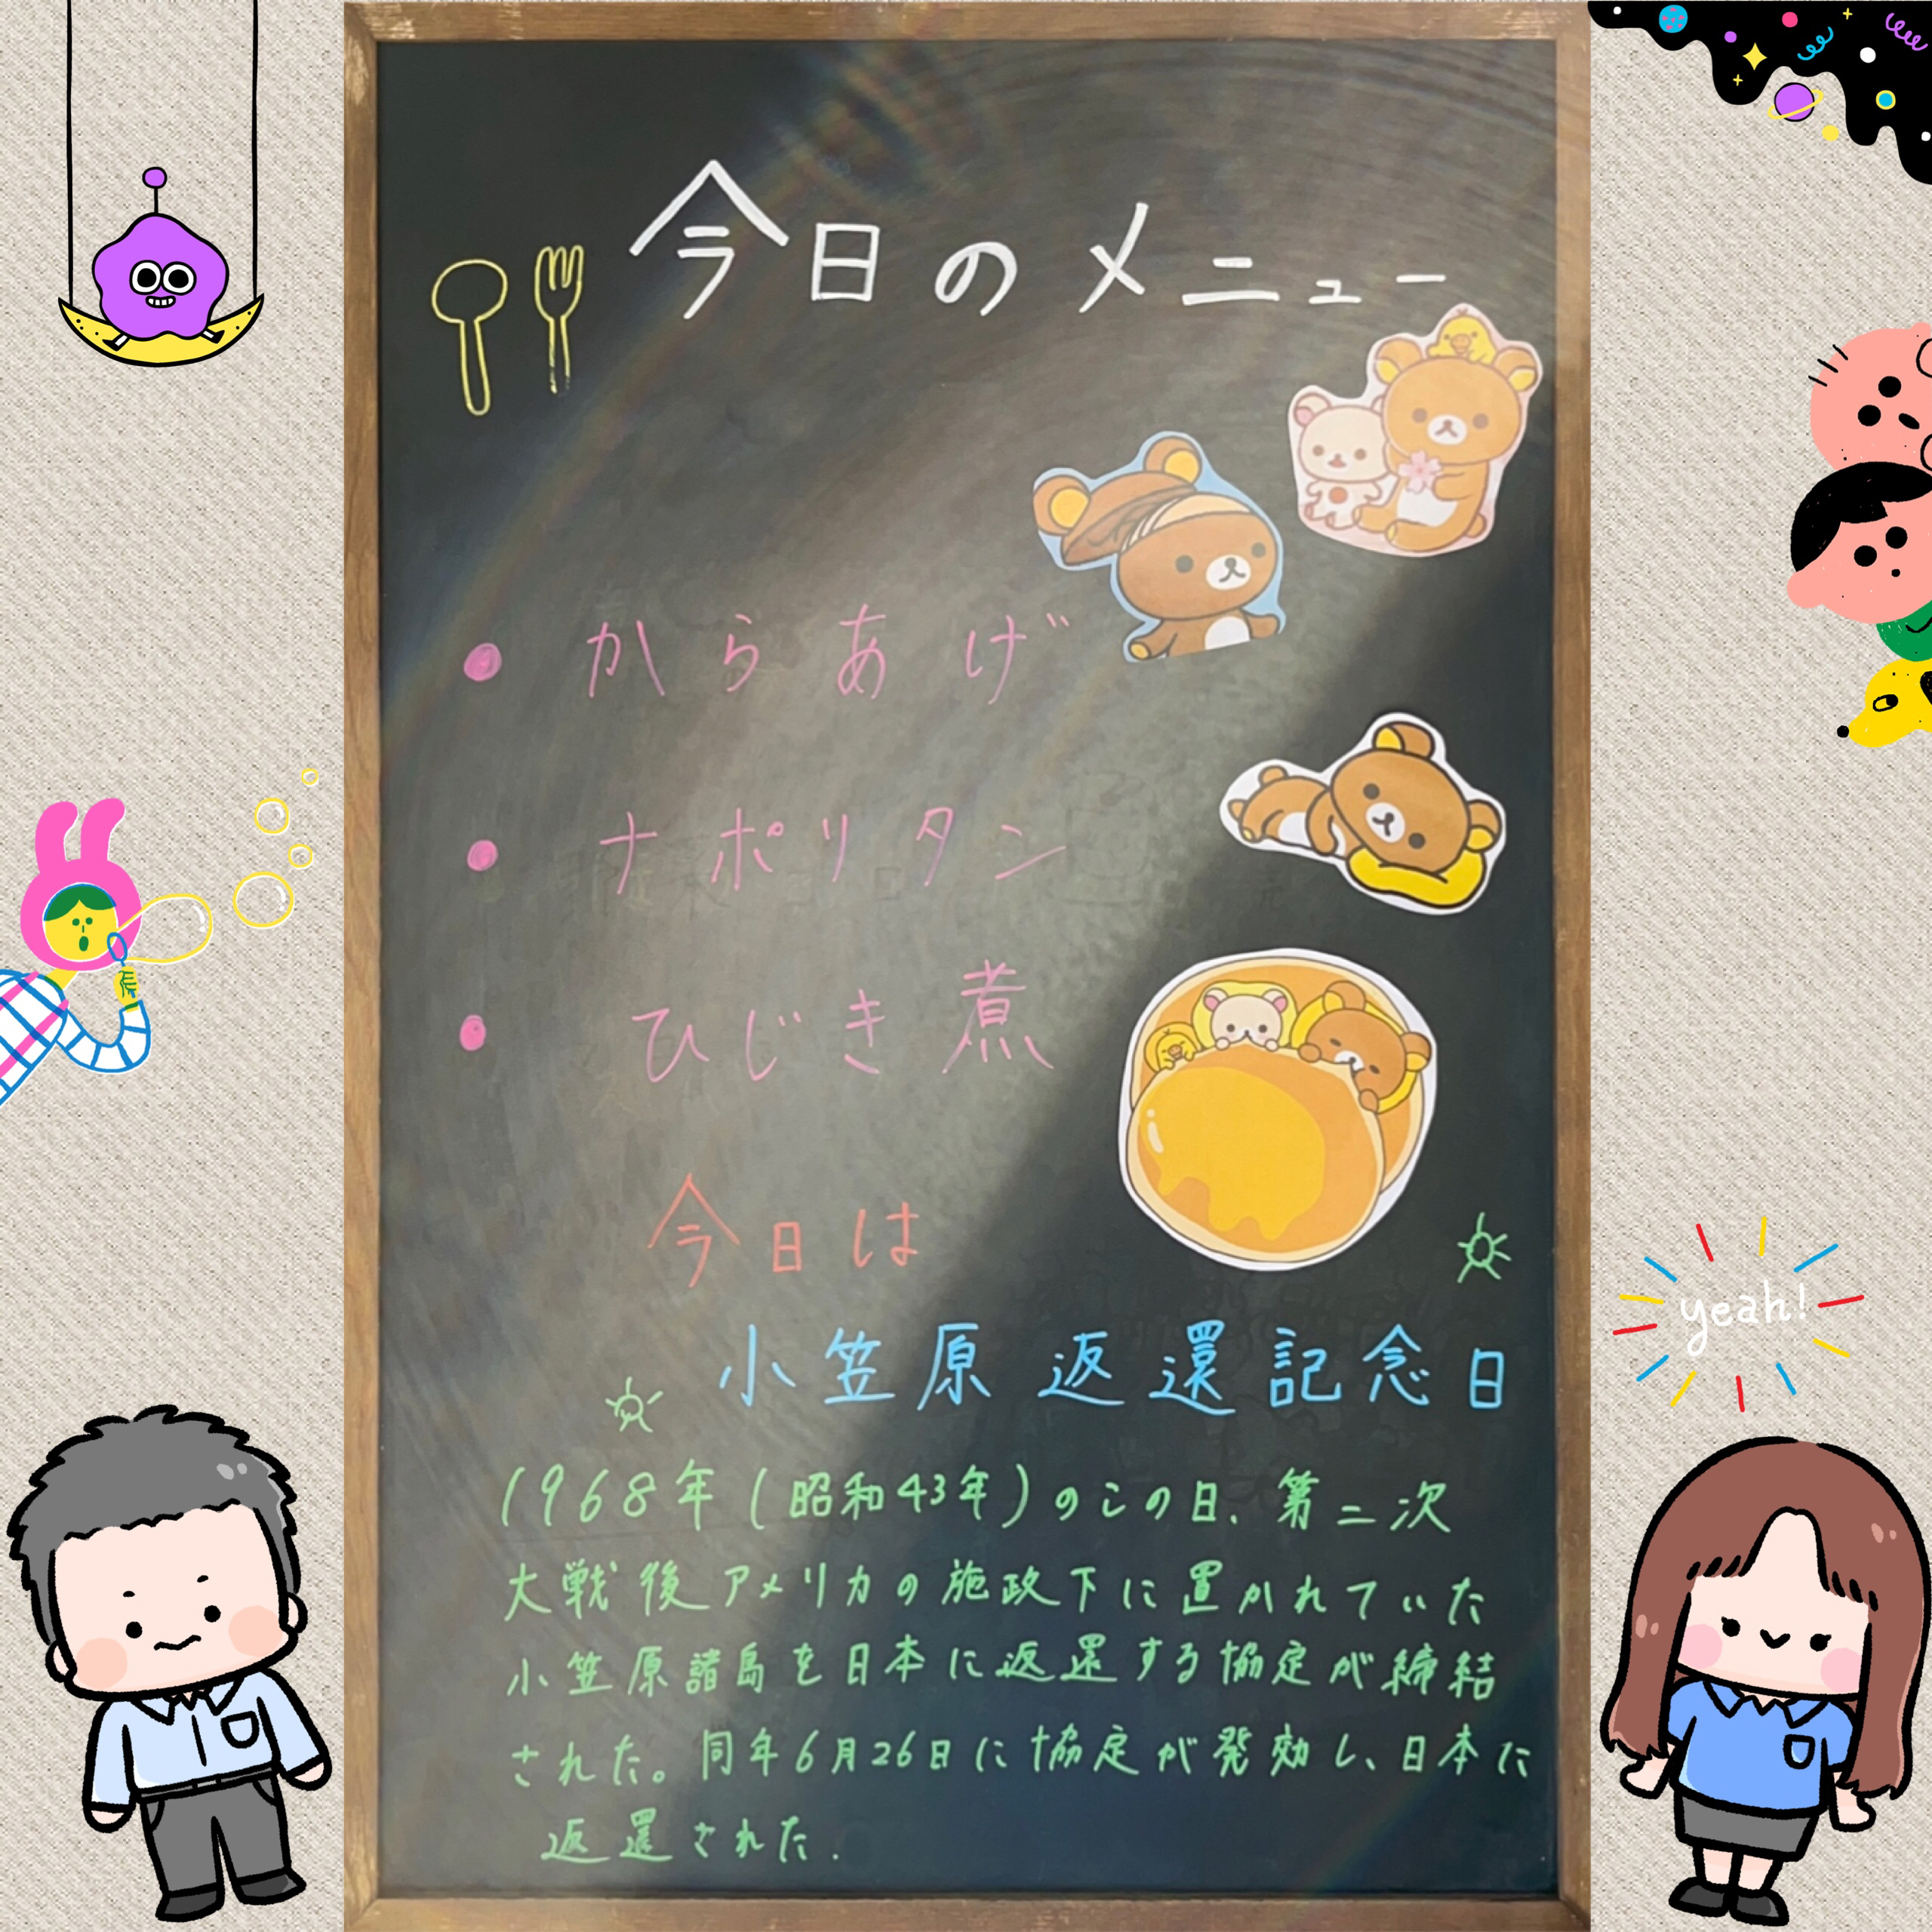 今日のメニュー
● からあげ
● ナポリタン
● ひじき煮
今日は
小笠原返還記念日
yeah!
1968年(昭和43年)のこの日、第二次
大戦後アメリカの施政下に置かれていた
小笠原諸島を日本に返還する協定が締結
された。同年6月26日に協定が発効し、日本に
返還された.